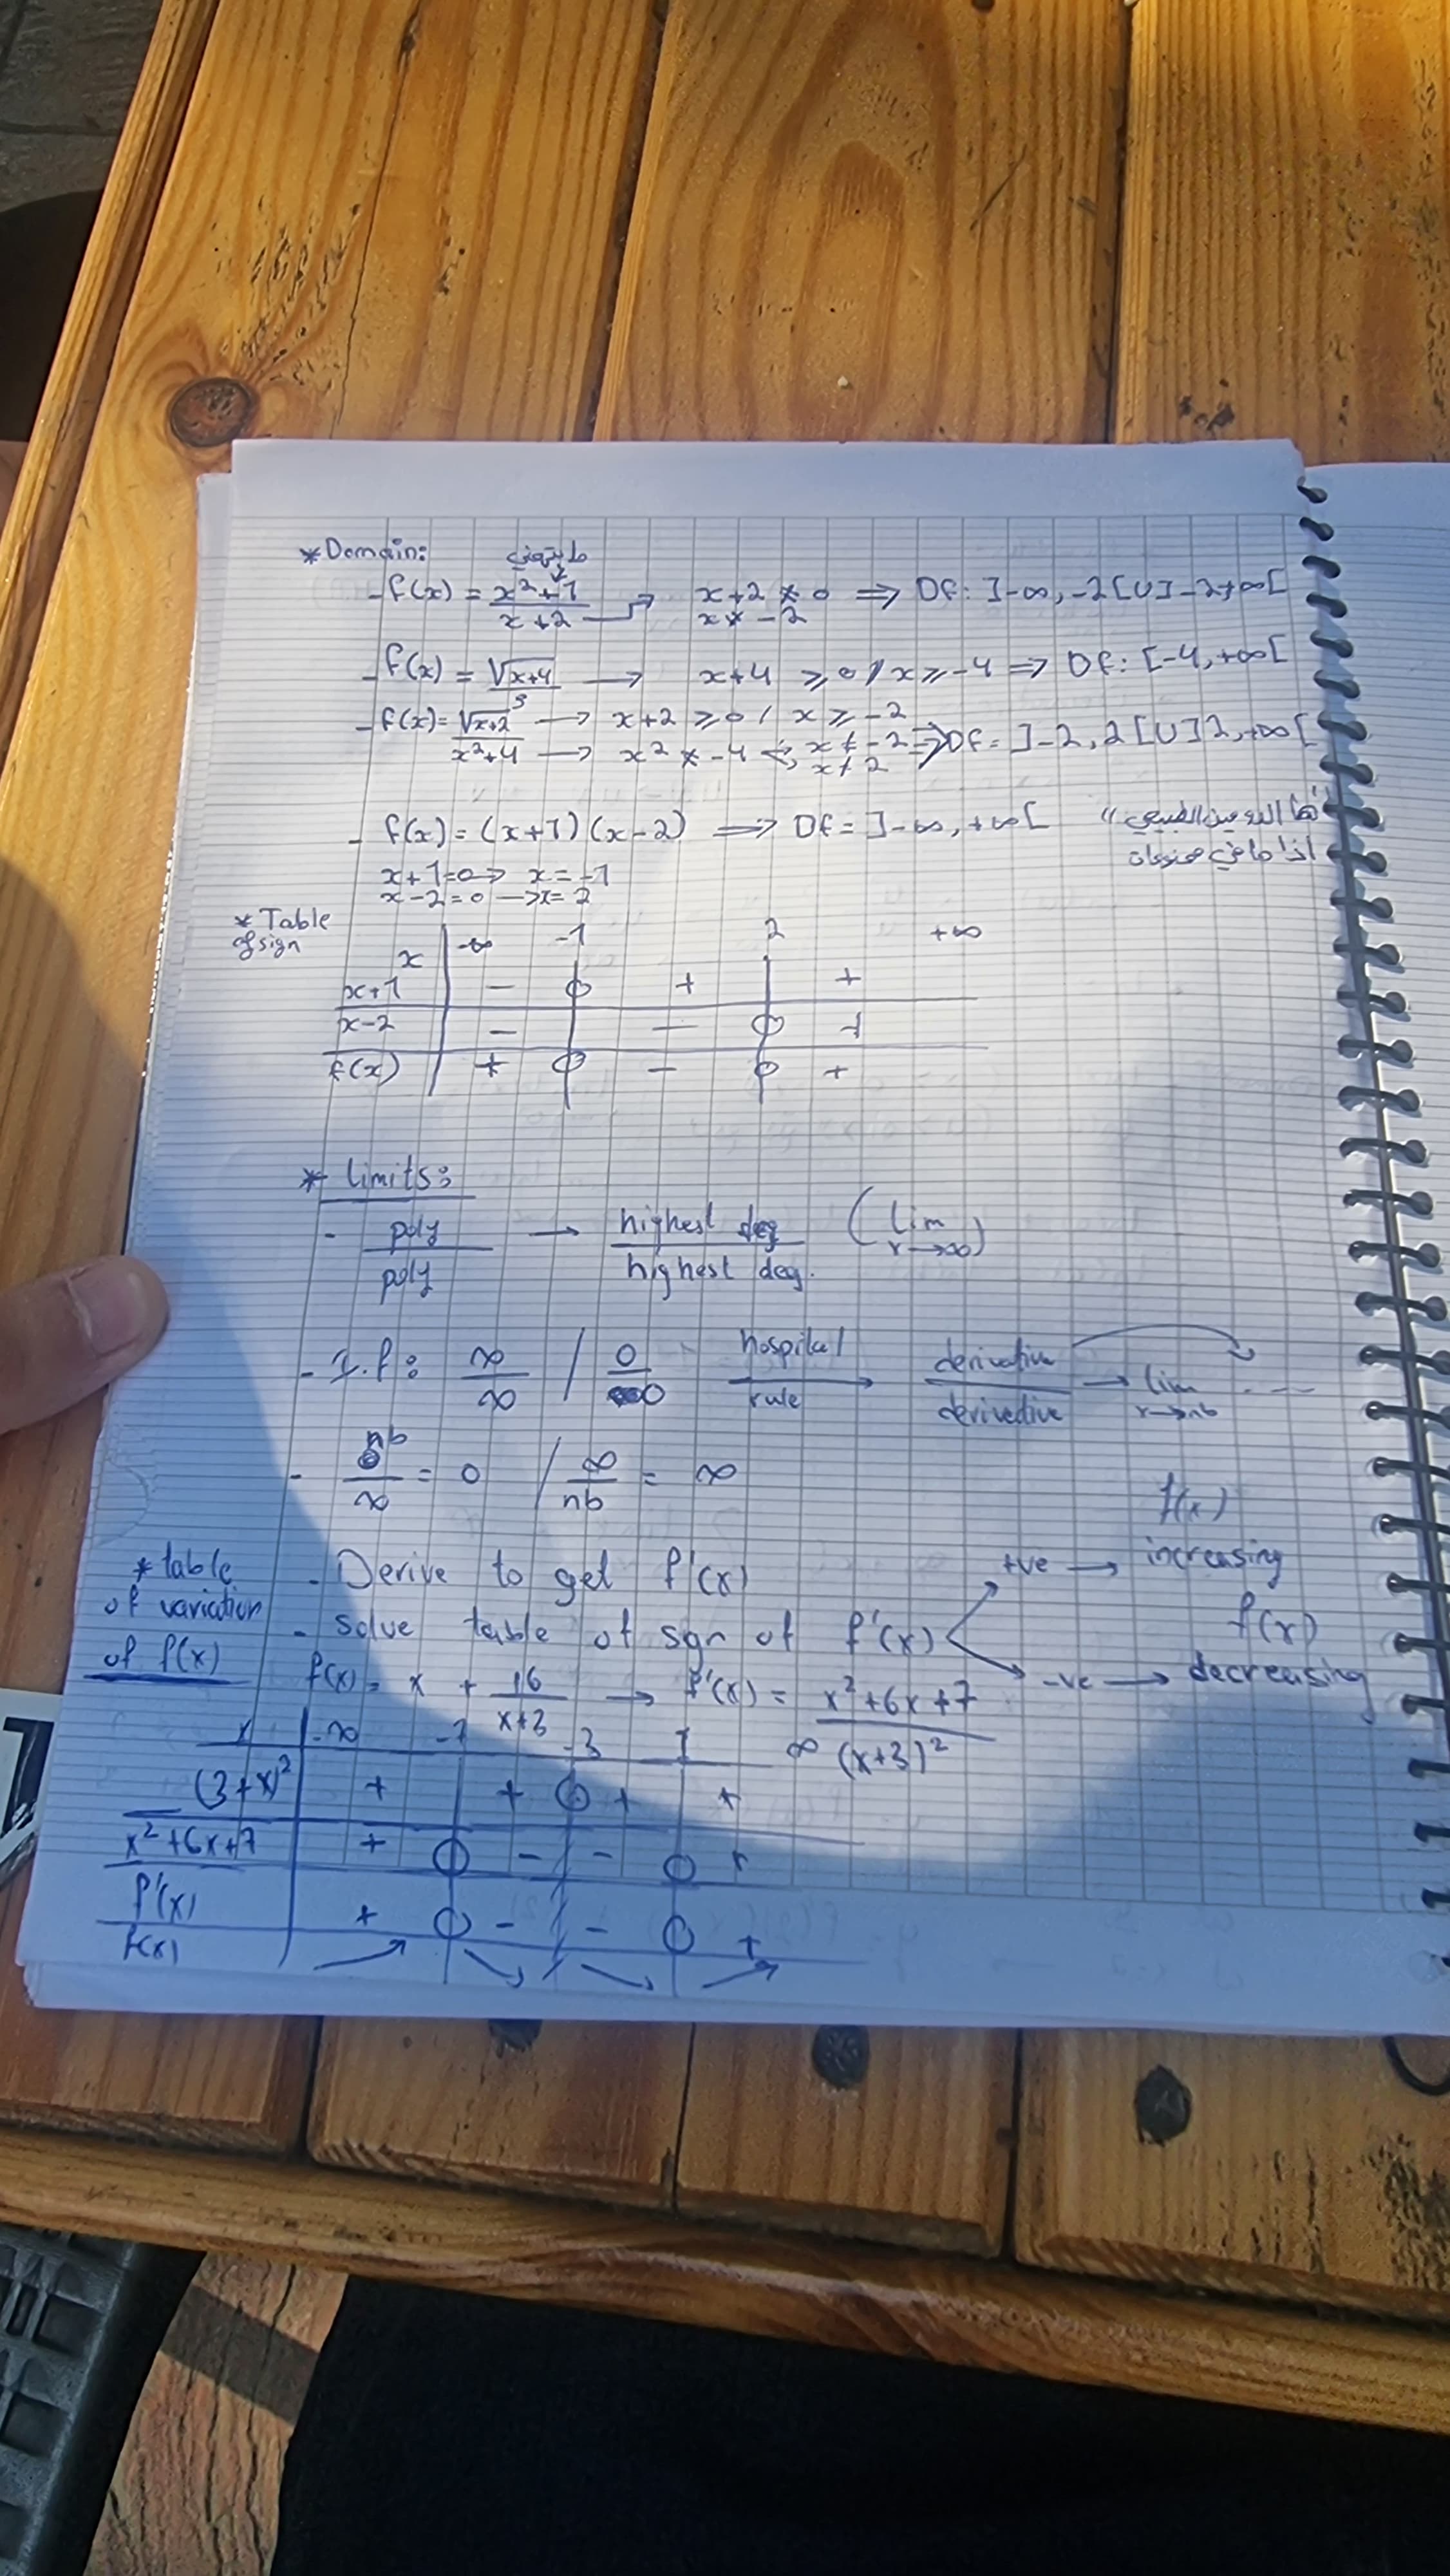 * Domain:
ما بتهمني
- f(x) = (x²+1)/(x+2) → x+2 ≠ 0 ⇒ Df: ]-∞, -2[U]-2,+∞[
x ≠ -2
- f(x) = √(x+4) → x+4 ≥ 0 / x ≥ -4 ⇒ Df: [-4, +∞[
- f(x) = √(x+2)³/(x²+4) → x+2 ≥ 0 / x ≥ -2
→ x² ≠ -4 x ≠ -2 ⇒ Df = ]-2, 2[U]2, +∞[
x ≠ 2
- f(x) = (x+1)(x-2) ⇒ Df = ]-∞, +∞[
اذا ما في
x+1=0 → x = -1
x-2=0 → x = 2
* Table
of sign
x | -∞ -1 2 +∞
x+1 | - 0 + | +
x-2 | - | - 0 +
f(x) | + 0 - 0 +
* Limits:
- poly/poly → highest deg/highest deg. (lim x→∞)
- I.f: ∞/∞ / 0/0 hospital rule → derivative/derivative → lim x→nb ----
- nb/∞ = 0 / ∞/nb = ∞
* table
of variation
of f(x)
- Derive to get f'(x)
- solve table of sgn of f'(x)
+ve → f(x) increasing
-ve → f(x) decreasing
f(x) = x + 16/(x+3) → f'(x) = (x²+6x+7)/(x+3)²
x | -∞ -7 -3 1 ∞
(3+x)² | + | + 0 + | +
x²+6x+7 | + 0 - | - 0 +
f'(x) | + 0 - || - 0 +
f(x) | ↗ ↘ || ↘ ↗